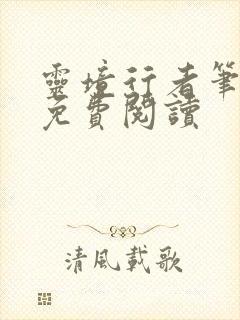 靈境行者筆
免費閱讀
清風載歌